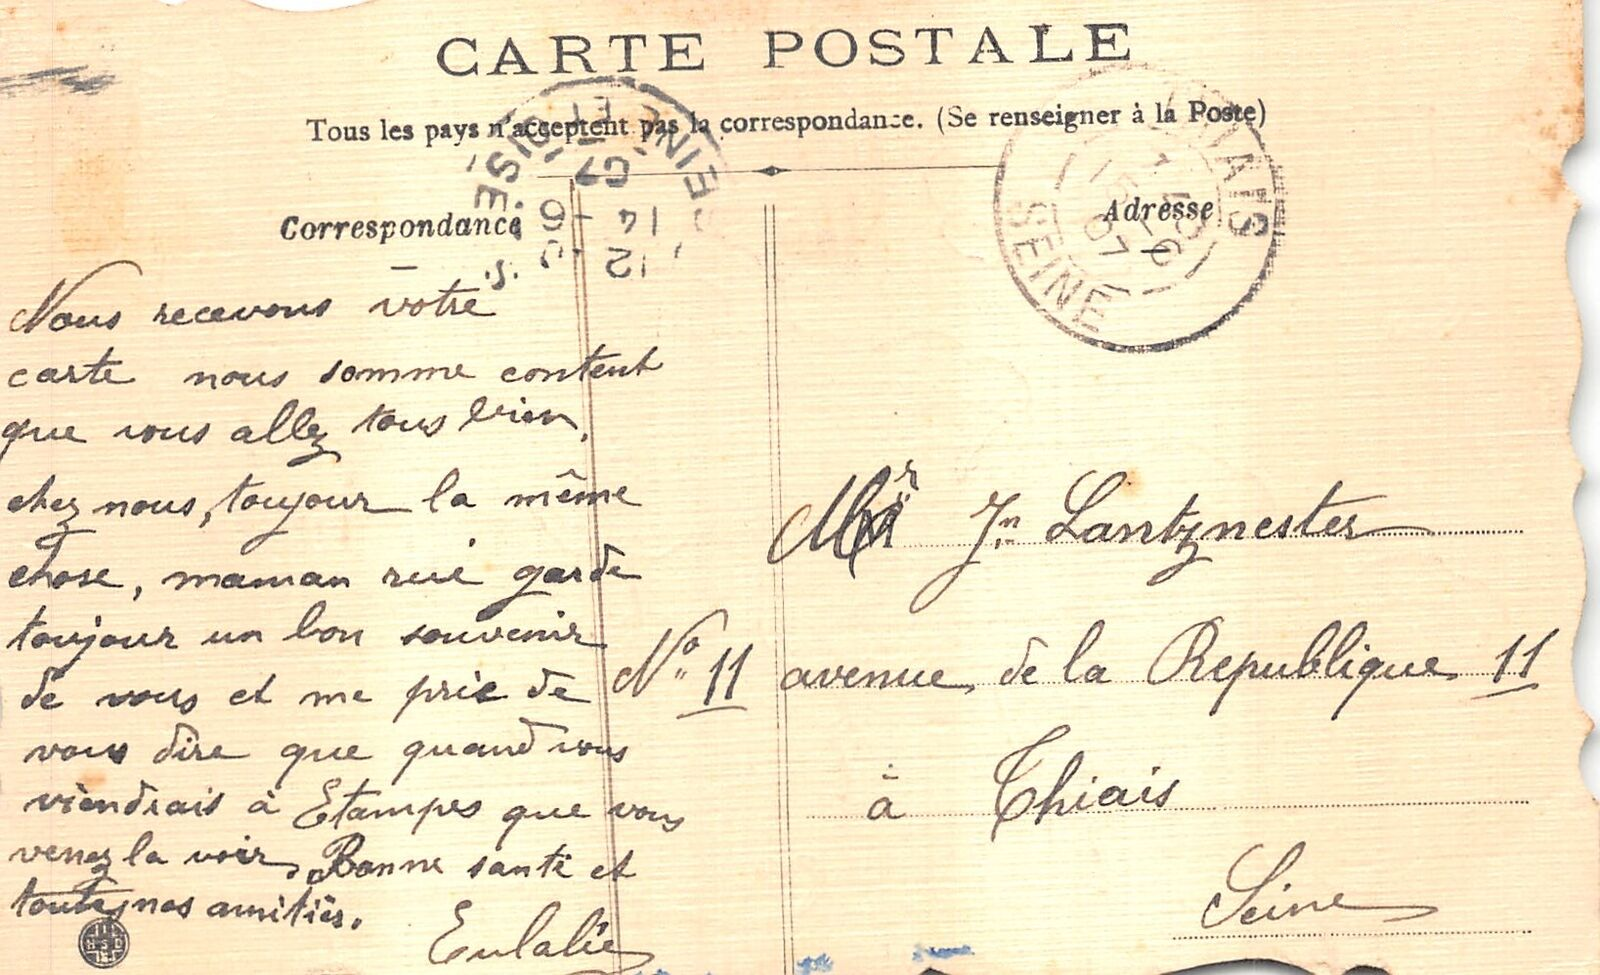 CARTE POSTALE
Tous les pays n'acceptent pas la correspondance. (Se renseigner à la Poste)
Correspondance
Nous recevons votre
carte nous somme content
que vous allez tous bien,
chez nous, toujour la même
chose, maman garde
toujour un bon souvenir
de vous et me prie de
vous dire que quand vous
viendrais à Etampes que vous
venez la voir, Bonne santé et
toutes nos amitiés.
Eulalie
HSD
Adresse
Mr Jn Lantznester
No 11 avenue de la Republique 11
à Thiais
Seine
SEINE ET OISE
14
12
THIAIS
SEINE
15
07